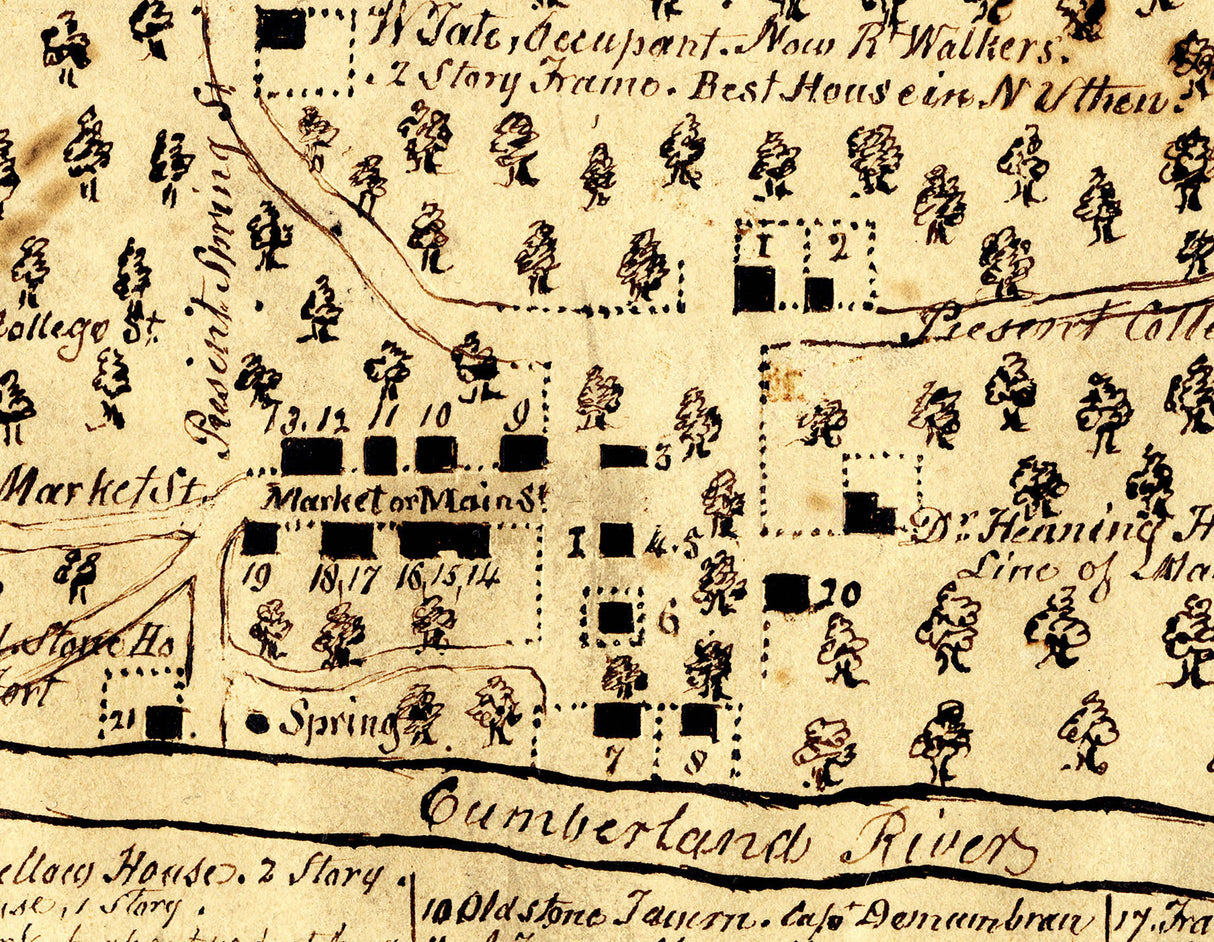 W Tate, Occupant. Now R. Walkers.
2 Story Frame. Best House in N Ville then.
Present Spring St
1 2
College St.
Present Colle
13. 12 11 10 9
3
Market St.
Market or Main St
Dr. Henning H
Line of
1 4. 5
19 18, 17 16, 15, 14
20
6
Stone Ho
Fort
21
Spring
7 8
Cumberland River
ellow House. 2 Story.
use, 1 Story.
10 Old stone Tavern. Capt Demumbrau
17. Fra